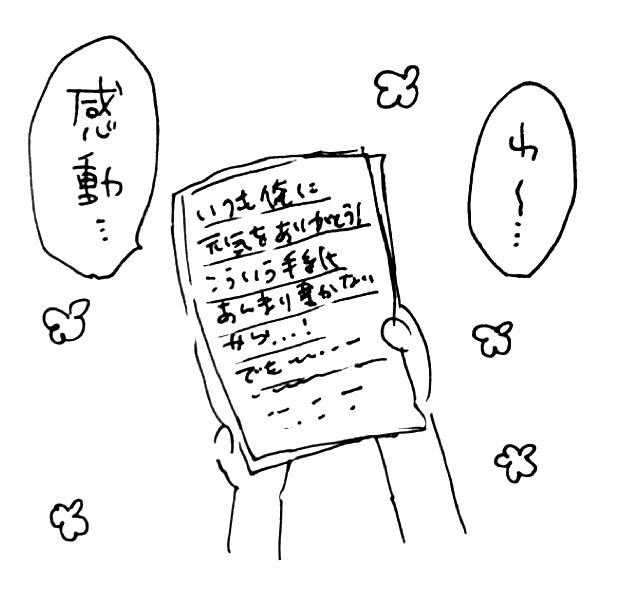 わ〜…
いつも俺に
元気をありがとう!
こういう手紙は
あんまり書かない
から…!
でも〜…
感動…